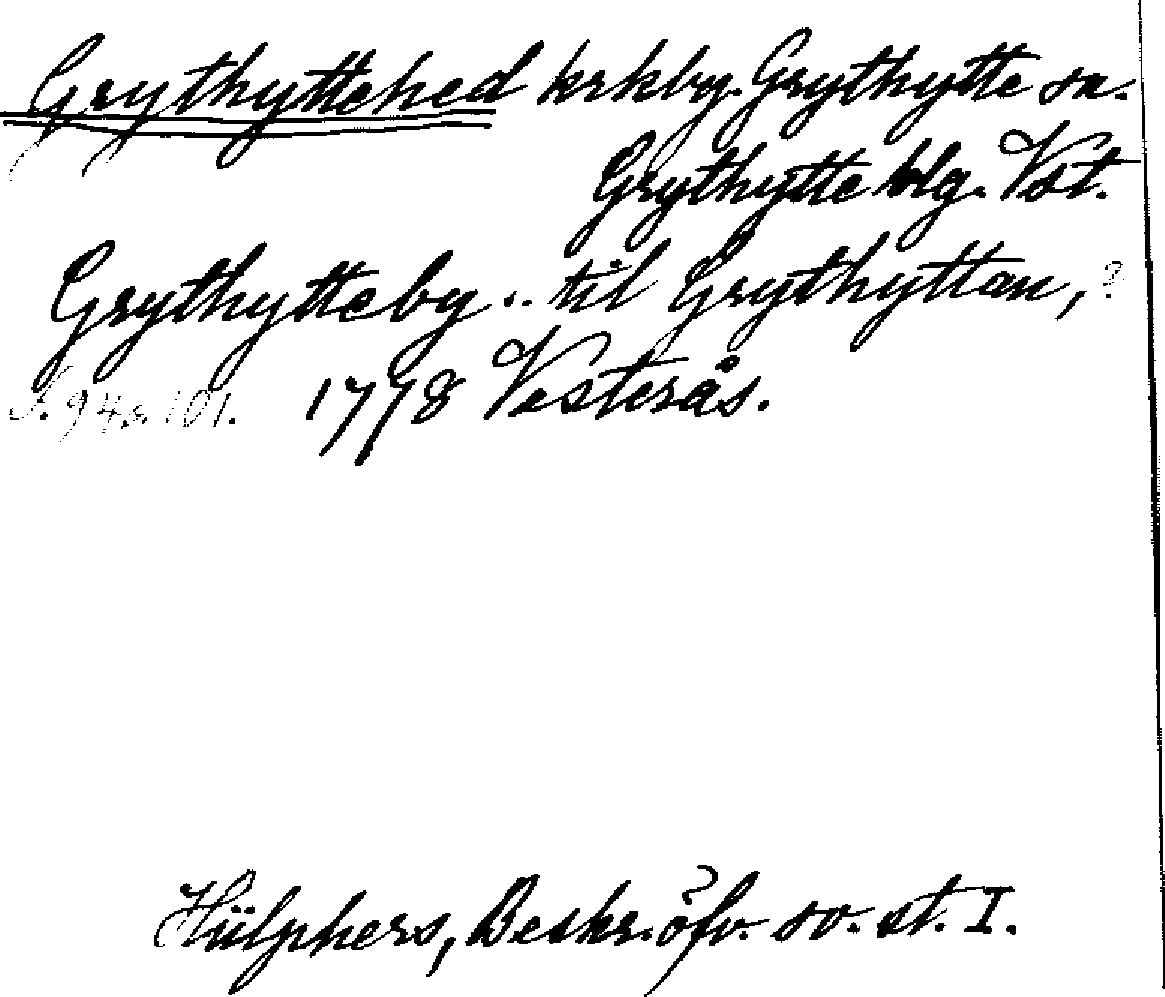 Grythyttehed krkby. Grythytte sn.
Grythytte blg. Vst.
Grythytteby .. til Grythyttan, ?
S. 94 s. 101. 1778 Vesterås.
Hülphers, Beskr. öfv. sv. st. I.